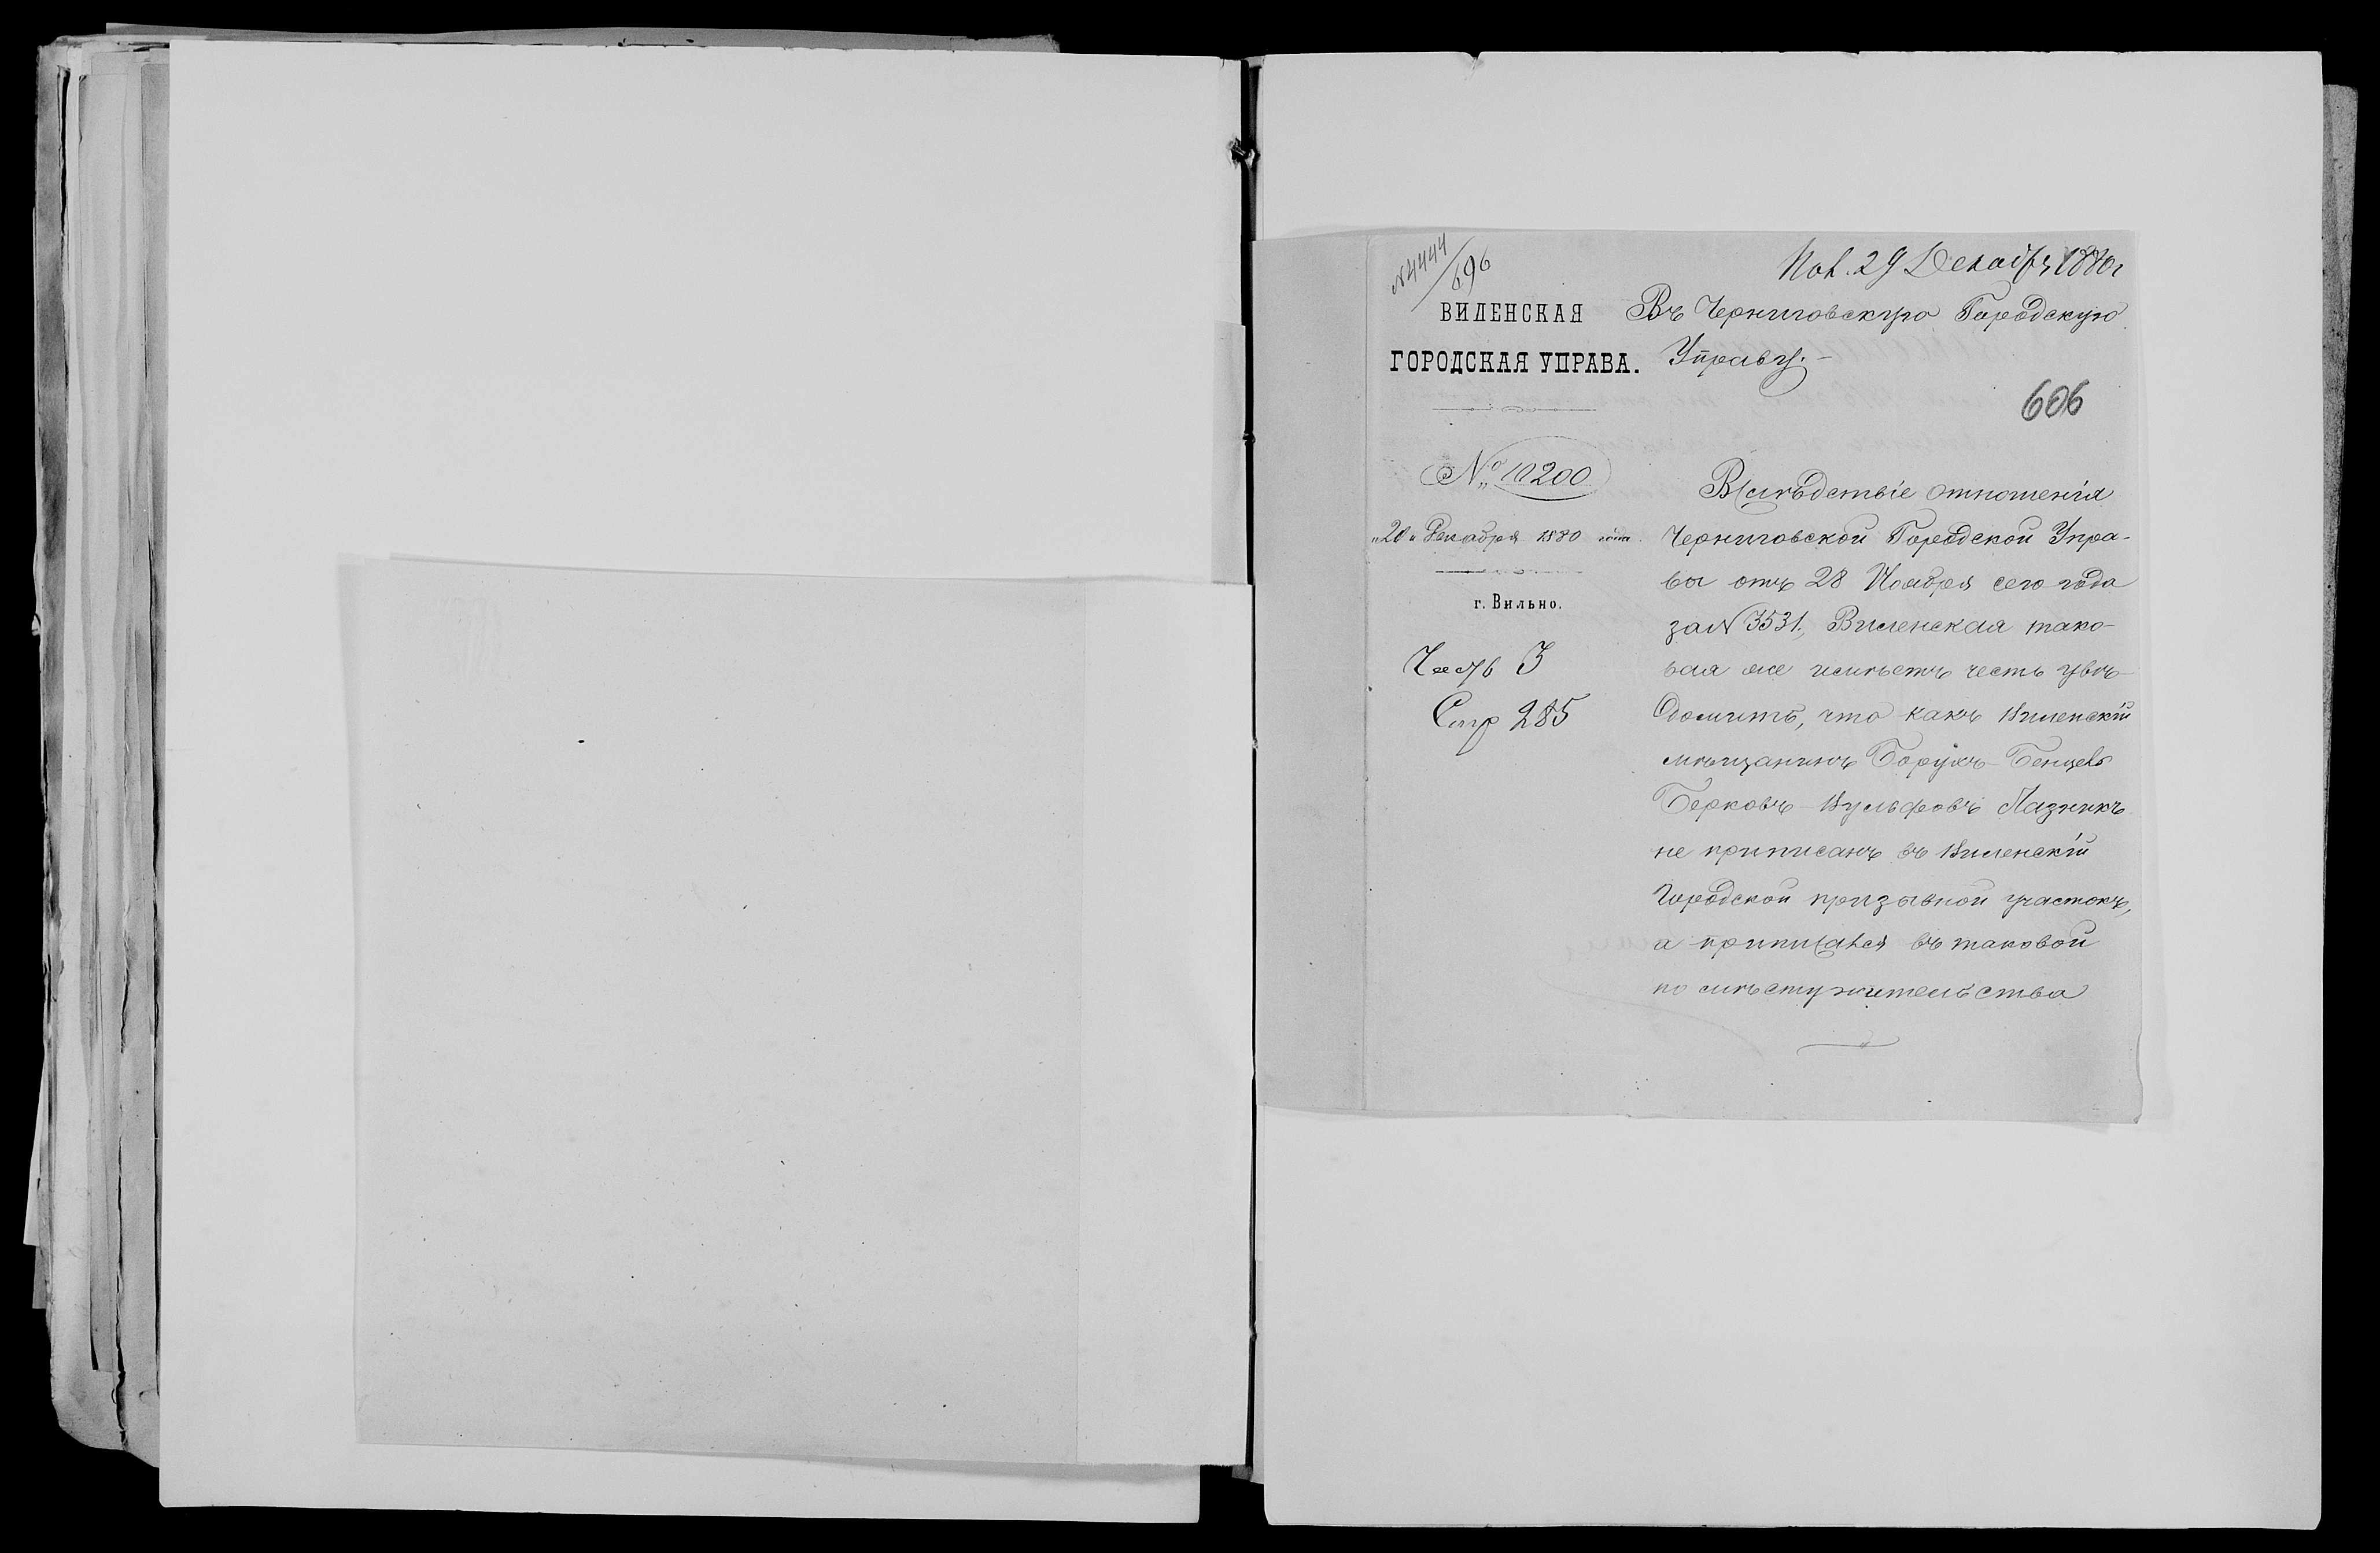 №4444/696
Пол. 29 Декабря 1880 г
ВИЛЕНСКАЯ
ГОРОДСКАЯ УПРАВА.
Въ Черниговскую Городскую
Управу.
606
№ 10200
„20„ Декабря 1880 года.
г. Вильно.
Часть 3
Стр 285
Вслѣдствіе отношенія
Черниговской Городской Упра-
вы отъ 28 Ноября сего года
за № 3531, Виленская тако-
вая же имѣетъ честь увѣ-
домить, что какъ Виленскій
мѣщанинъ Борухъ-Бенцель
Берковъ-Вульфовъ Лазникъ
не приписанъ въ Виленскій
Городской призывной участокъ,
а приписался въ таковой
по мѣсту жительства